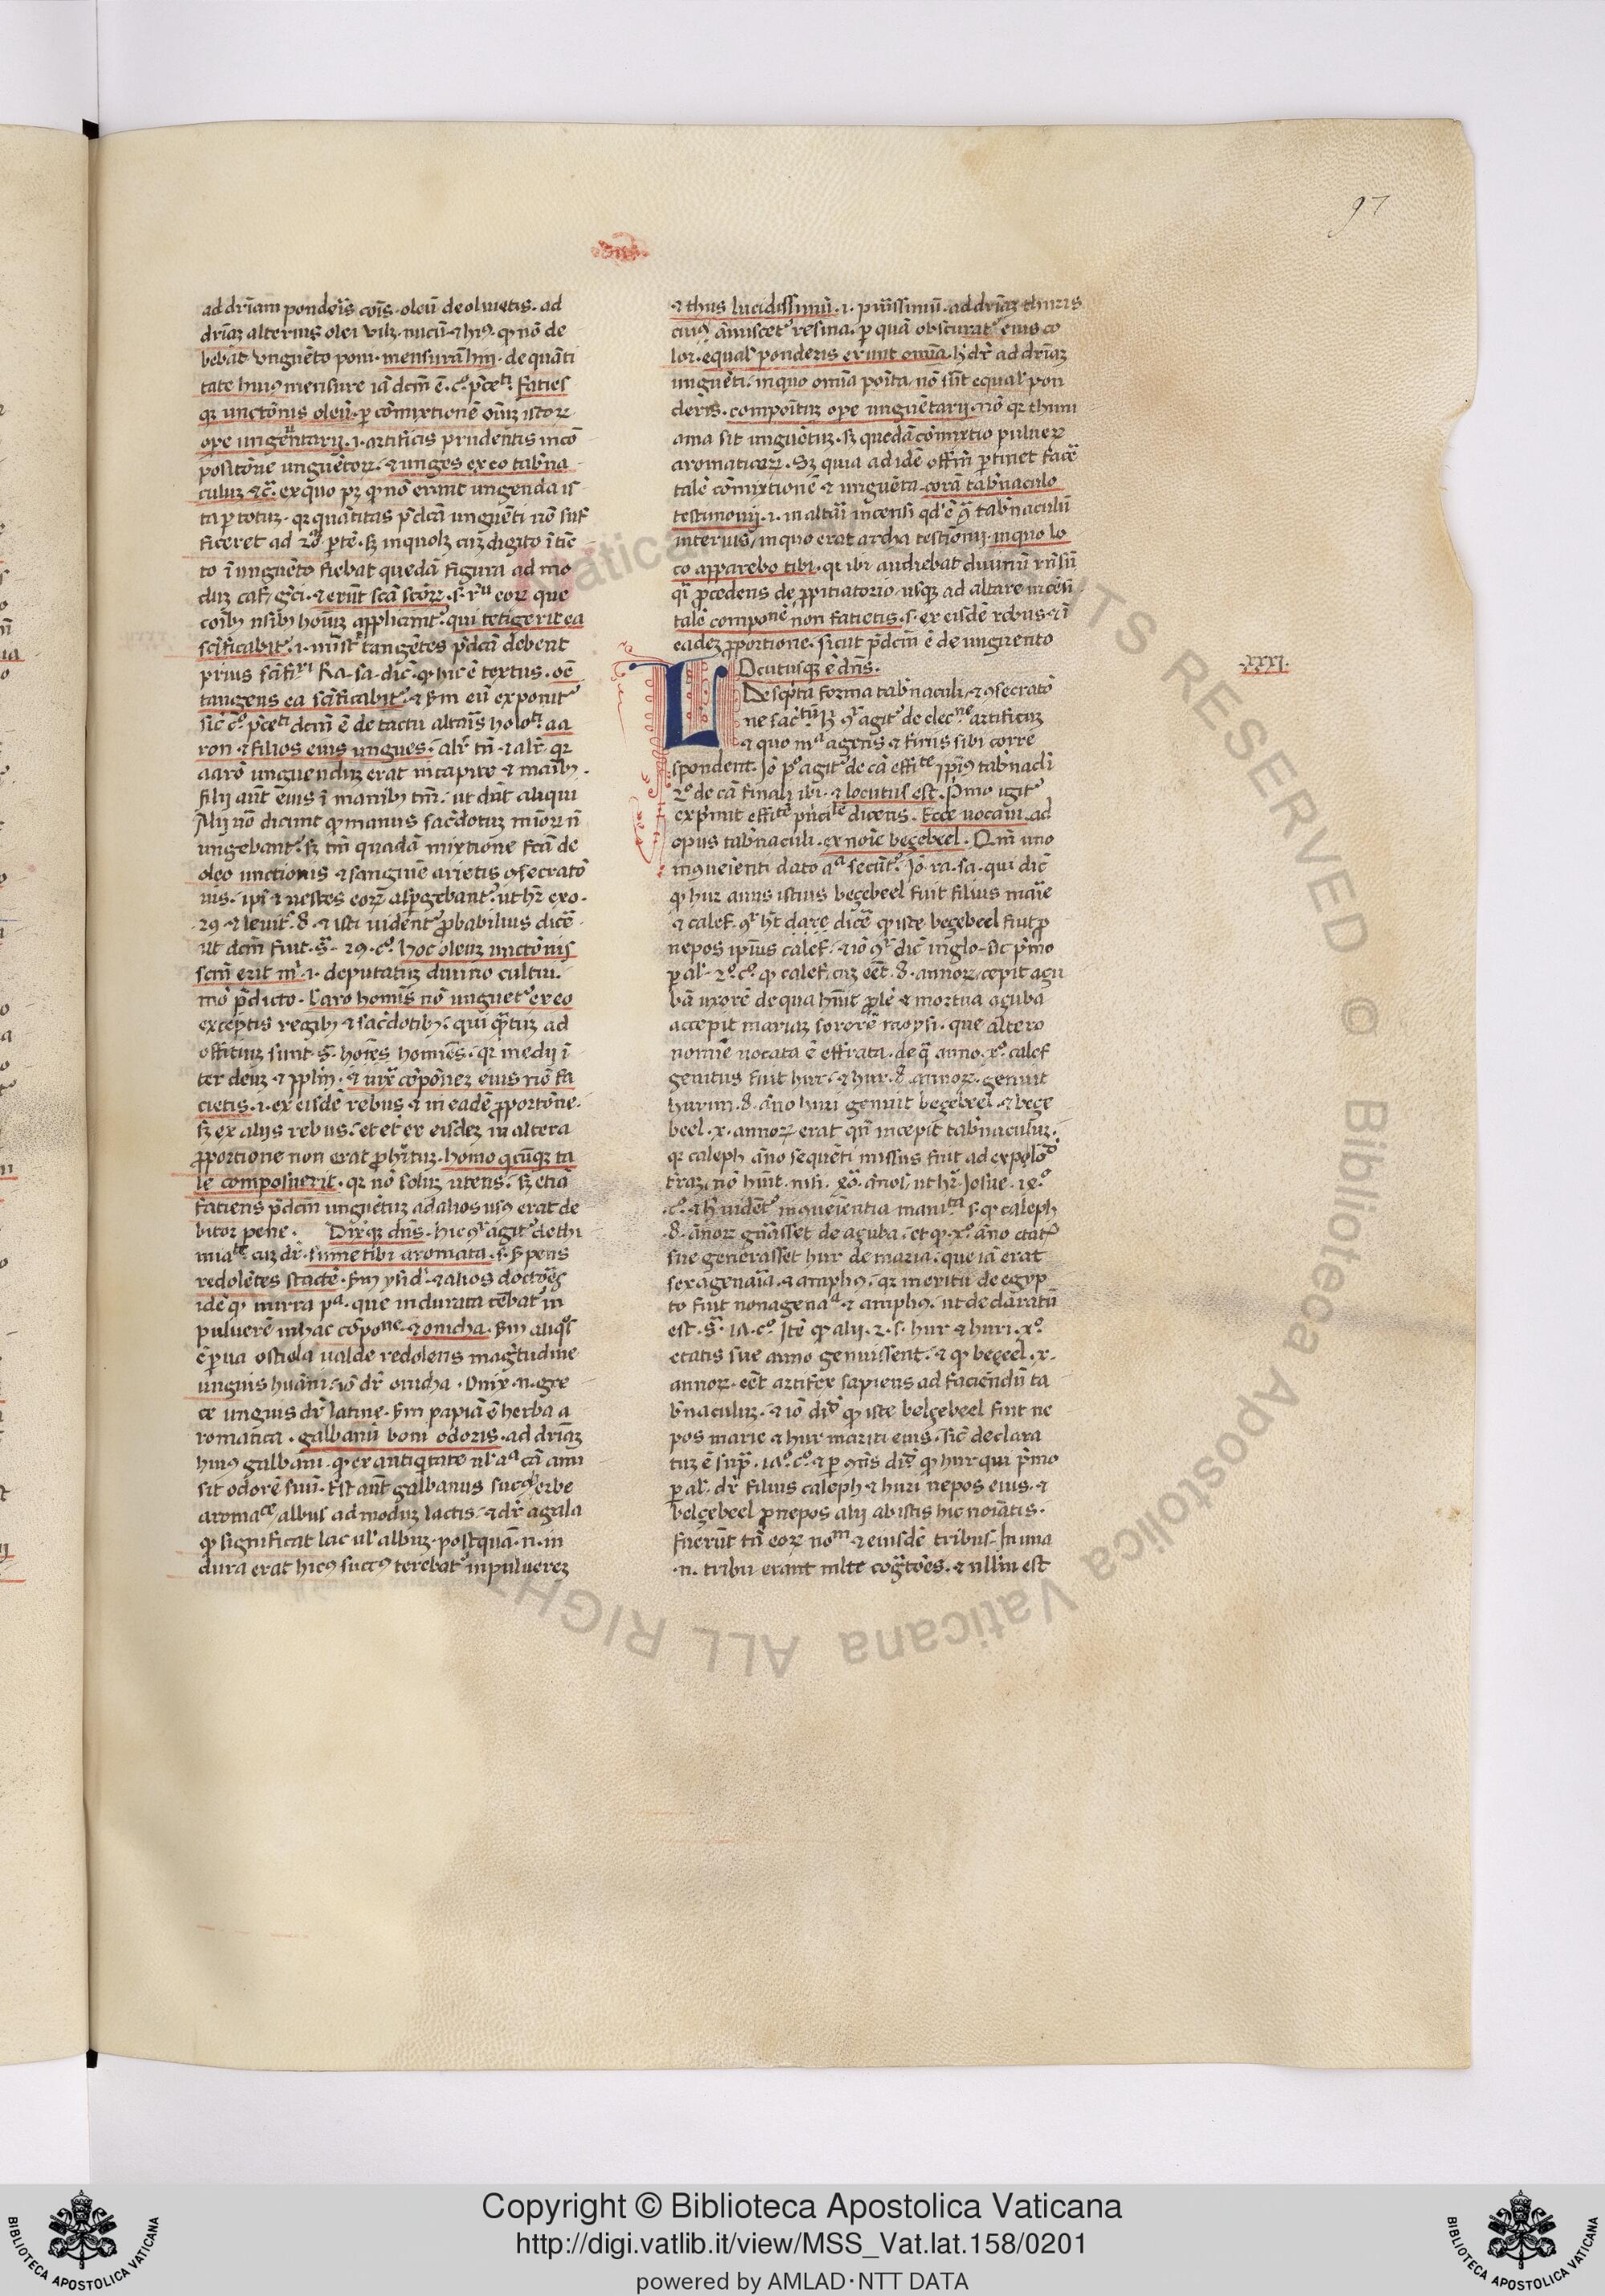 97
ad dr̄iam ponderis cois̄ · oleū de oliuetis · ad
dr̄iaꝫ alterius olei
bebat vnguēto poni · mensurā hin · de quāti
tate huiꝰ mensure iā dcm̄ ē · Facies
qꝫ unctōnis oleū · ꝑ cōmixtionē oīuꝫ istoꝝ
ope ungētarij · i · artificis prudentis in cō
positōne unguētoꝝ · ⁊ unges ex eo tab̄na
culuꝫ ⁊c̄ · ex quo pꝫ qꝫ nō erant ungenda is
ta ꝑ totuꝫ · qꝛ quātitas p̄dc̄a unguēti nō suf
ficeret ad · sꝫ in quolꝫ cuꝫ digito ītīc
to ī unguēto fiebat quedā figura ad mo
duꝫ · ⁊ erūt scā scōꝝ · eoꝝ que
applicant᷑ · qui tetigerit ea
sc̄ificabit᷑ · i · tangētes p̄dc̄a debent
prius · Ra · sa · dic̄ · ꝙ hic ē textus · oē
tangens ea sc̄ificabit᷑ · ⁊ sm̄ eū exponit᷑
sic̄ · dcm̄ ē de tactu altaris · aa
ron ⁊ filios eius unges · alr̄ tn̄ · ⁊ alr̄ qꝛ
aarō unguenduꝫ erat in capite ⁊ maibꝫ ·
filij aūt eius ī manibꝫ tm̄ · ut dn̄t aliqui
Alij uō dicunt ꝙ manus sac̄dotuꝫ mīoꝝ n̄
ungebant᷑ · sꝫ tm̄ quadā mixtione fcā de
oleo unctionis ⁊ sanguīe arietis ꝯsecratō
nis · ipsi ⁊ uestes eoꝝ asꝑgebant᷑ · ut hr̄ exo ·
29 · ⁊ leuit᷑ · 8 · ⁊ isti uident᷑ ꝓbabilius dicē ·
ut dcm̄ fuit · sᷓ · 29 · cº · hoc oleuꝫ unctōnis
scm̄ erit mⁱ · i · deputatuꝫ diuino cultui ·
mō p̄dicto · Caro homīs nō unguet᷑ ex eo
exceptis regibꝫ ⁊ sac̄dotibꝫ · qui ad
offitiuꝫ sunt sᷓ · hoīes homēs · qꝛ medij ī
ter deuꝫ ⁊ ꝓplm̄ · ⁊ iuxᵃ cōpōneꝫ eius nō fa
cietis · i · ex eisdē rebus ⁊ in eadē ꝓportōne ·
sꝫ ex alijs rebus · et ex eisdeꝫ in altera
ꝓportione non erat ꝓhibituꝫ · homo qͥcūqꝫ ta
le composuerit · qꝛ nō soluꝫ utens · sꝫ etiā
fatiens p̄dcm̄ unguētuꝫ ad alios usꝰ erat de
bitor pene · Dixitqꝫ dn̄s · hic ꝯᷣ agit᷑ de thi
miaᵗᵉ cuꝫ dr̄ · sume tibi aromata · s ·
redolētes stactē · sm̄ ysid᷑ · ⁊ alios doctōēs
idē ꝙ mirra pᵃ · que indurata in
puluerē in hac cōpoⁿᵉ · ⁊ onicha · sm̄ aliqͦs
ē ꝑua ostiola ualde redolens magͥtudine
unguis huāni · iō dr̄ onicha · Onix · n · gre
ce unguis dr̄ latine · sm̄ papiā ē herba a
romatica · galbanū boni odoris · ad dr̄iaꝫ
huiꝰ galbani · ꝙ ex antiqͥtate ul᷑ aᵃ cā ami
sit odorē suū · Est aūt galbanus succꝰ erbe
aromaᶜᵉ albus ad moduꝫ lactis · ⁊ dr̄ agala
ꝙ significat lac ul᷑ albuꝫ · postquā · n · in
dura erat hicꝰ succꝰ terebat᷑ in puluereꝫ
⁊ thus lucidissimū · i · purissimū · ad dr̄iaꝫ thuris
cuiꝰ āmiscet᷑ resina · ꝑ quā obscurat᷑ eius co
lor · equal᷑ ponderis erunt omīa · dr̄ ad dr̄iaꝫ
unguēti · in quo omīa poīta nō sūt equal᷑ pon
deris · compoītuꝫ ope unguētarij · nō qꝛ thimi
ama sit unguētuꝫ · sꝫ quedā cōmixtio pulueꝝ
aromaticoꝝ · Sꝫ quia ad idē offm̄ ꝑtinet facē
talē cōmixtionē ⁊ unguēta · corā tab̄naculo
testimonij · i · in altāi incensi qd̄ ē tab̄naculū
interius in quo erat archa testīonij · in quo lo
co apparebo tibi · qꝛ ibi audiebat diuinū rn̄sū
qͥ ꝓcedens de ꝓpitiatorio usqꝫ ad altare incēsi
talē compoⁿᵉ non fatietis · s · ex eisdē rebus · ⁊ ī
eadeꝫ ꝓportione · sicut p̄dcm̄ ē de unguento
Locutusqꝫ ē dn̄s ·
Descpta forma tab̄naculi · ⁊ ꝯsecratō
ne · ꝯᷣ agit᷑ de elecⁿᵉ artificuꝫ
⁊ quo mᵃ agens ⁊ finis sibi corre
spondent · Iō pº agit᷑ de cā effiᵗᵉ tab̄nacli
2º de cā finali ibi · ⁊ locutus est · Primo igit᷑
exprimit effiᵗᵉ dicens · Ecce uocaui · ad
opus tab̄naculi · ex noīe beçebeel · Qm̄ uno
incōueienti dato aᵃ secūt᷑ · Iō · ra · sa · qui dic̄
ꝙ hur auus istius beçebeel fuit filius marīe
⁊ calef · dicē ꝙ iste beçebeel fuit ꝓ
nepos ipīus calef · ⁊ iō ꝯᷣ dic̄ in glo · sic pͥmo
ꝑal᷑ · 2º · cº · ꝙ calef cuꝫ eēt · 8 · annoꝝ cepit açu
bā uxorē de qua huit ꝓlē ⁊ mortua açuba
accepit mariaꝫ sororē moysi · que altero
nomīe uocata ē effrata · de qᷓ anno · xº · calef
genitus fuit hur · ⁊ hur · 8 · annoꝝ · genuit
hurim · 8 · āno huri genuit beçebeel · ⁊ beçe
beel · x · annoꝝ erat qn̄ incepit tab̄naculuꝫ ·
qꝛ caleph āno sequēti missus fuit ad
traꝫ · nō huit · nisi · ānos · ut hr̄ · Iosue ·
· cº · ⁊ h̄ uident᷑ incōueientia · ꝙ caleph
· 8 · ānoꝝ gn̄asset de açuba · et ꝙ · xº · āno etatꝭ
sue generasset hur de maria · que iā erat
sexagenaīa · ⁊ amplꝰ · qꝛ in exitu de egyp
to fuit nonagenaᵃ · ⁊ amplꝰ · ut declaratū
est · sᷓ · cº · Itē ꝙ alij · 2 · s · hur ⁊ huri · xº ·
etatis sue anno genuissent · ⁊ ꝙ beçeel · x ·
annoꝝ · eēt artifex sapiens ad faciēndū ta
b̄naculuꝫ · ⁊ iō ꝙ iste belçebeel fuit ne
pos marie ⁊ hur mariti eius · sic̄ declara
tuꝫ ē supᷓ · cº · ⁊ ꝑ ꝙ hur qui pͥmo
ꝑal᷑ · dr̄ filius caleph ⁊ huri nepos eius · ⁊
belçebeel ꝓnepos alij ab istis hic noīatis ·
fuerūt tn̄ eoꝝ ⁊ eiusdē tribus · In una
· n · tribu erant multe cogͣtōes · ⁊ est
· xxxi ·
Copyright © Biblioteca Apostolica Vaticana
http://digi.vatlib.it/view/MSS_Vat.lat.158/0201
powered by AMLAD·NTT DATA
BIBLIOTECA APOSTOLICA VATICANA
BIBLIOTECA APOSTOLICA VATICANA
© Biblioteca Apostolica Vaticana ALL RIGHTS RESERVED